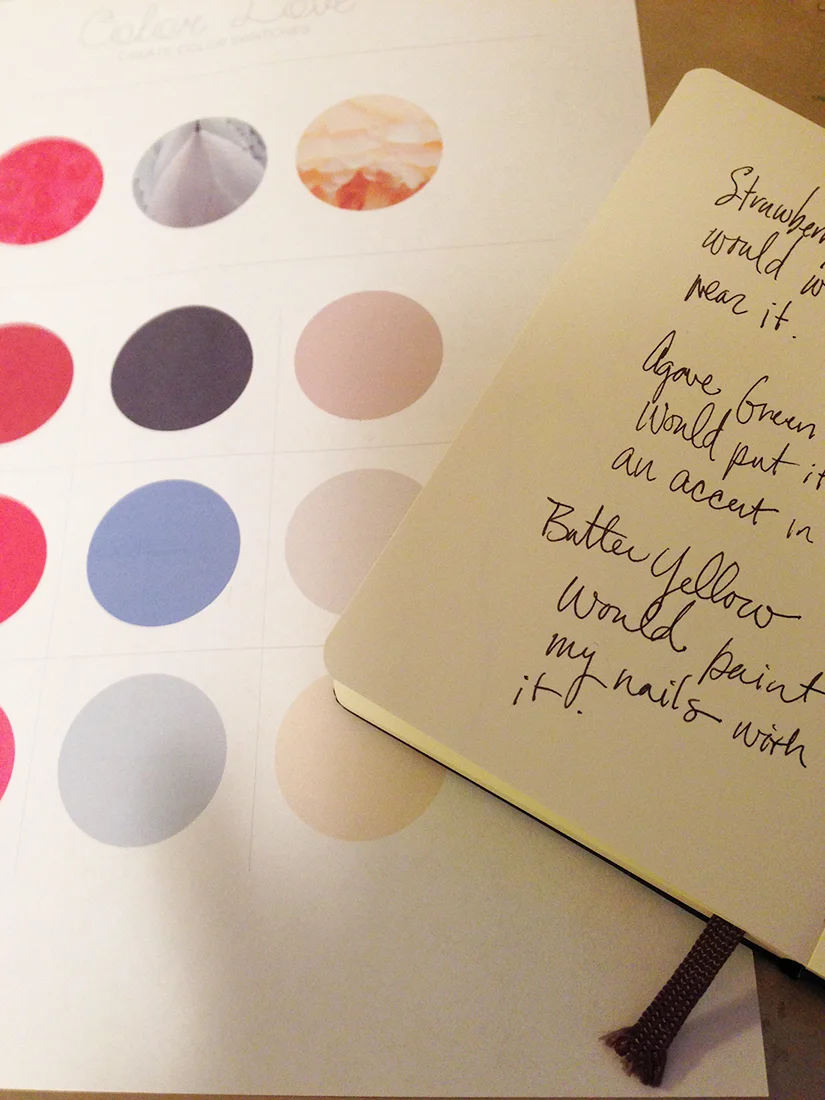 Color Love
CREATE COLOR
Strawber
would w
near it.
Agave Green
Would put it
an accent in
Butter Yellow
Would paint
my nails with
it.